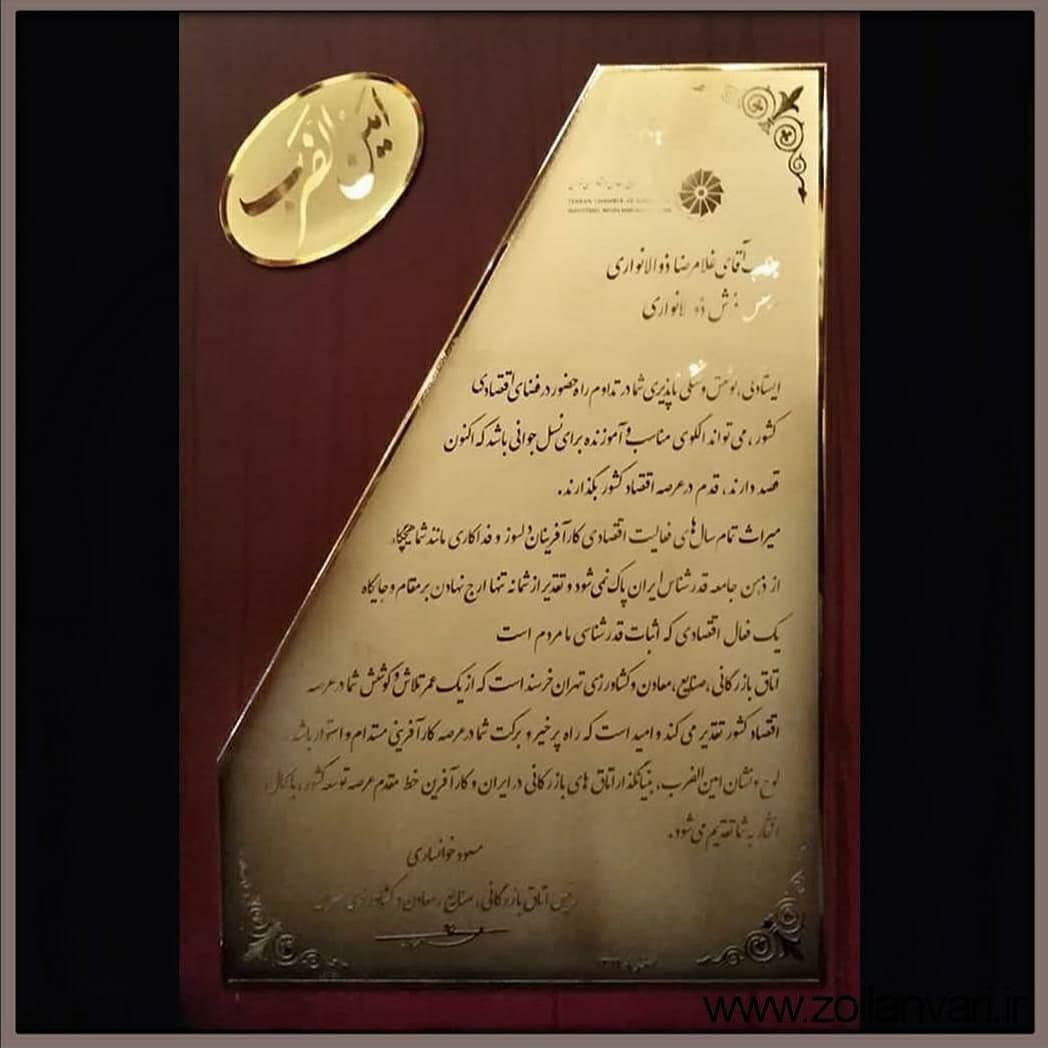 امین الضرب
TEHRAN CHAMBER OF
جناب آقای غلامرضا ذوالانواری
فرش ذوالانواری
ایستادگی، کوشش و خستگی ناپذیری شما در تداوم راه حضور در فضای اقتصادی
کشور، می تواند الگوی مناسب و آموزنده برای نسل جوانی باشد که اکنون
قصد دارند، قدم در عرصه اقتصاد کشور بگذارند.
میراث تمام سال های فعالیت اقتصادی کارآفرینان دلسوز و فداکاری مانند شما هیچگاه
از ذهن جامعه قدرشناس ایران پاک نمی شود و تقدیر از شما نه تنها ارج نهادن بر مقام و جایگاه
یک فعال اقتصادی که اثبات قدرشناسی ما مردم است
اتاق بازرگانی، صنایع، معادن و کشاورزی تهران خرسند است که از یک عمر تلاش و کوشش شما در عرصه
اقتصاد کشور تقدیر می کند و امید است که راه پرخیر و برکت شما در عرصه کارآفرینی مستدام و استوار باشد
لوح و نشان امین الضرب، بنیانگذار اتاق های بازرگانی در ایران و کارآفرین خط مقدم عرصه توسعه کشور، با کمال
افتخار به شما تقدیم می شود.
مسعود خوانساری
رئیس اتاق بازرگانی، صنایع، معادن و کشاورزی تهران
www.zollanvari.ir